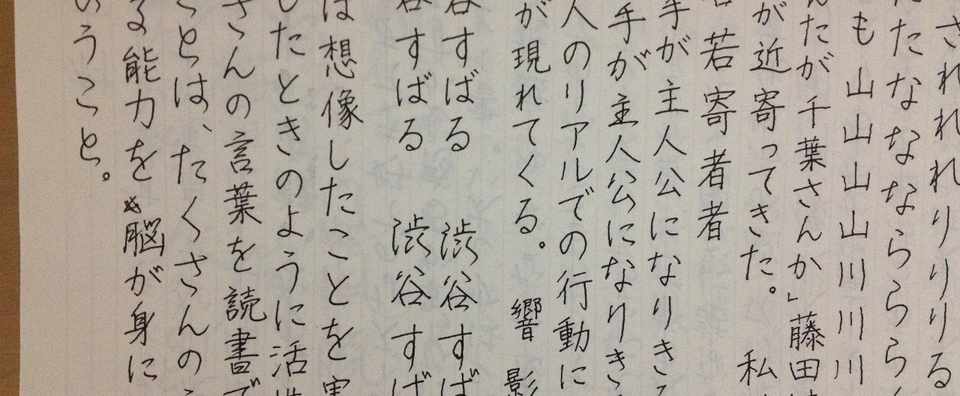 されれれりりりる
たたなななららら
も山山山山川川川
んたが千葉さんか」藤田
が近寄ってきた。　私
若若寄者者
手が主人公になりき
手が主人公になりき
人のリアルでの行動に
が現れてくる。　響影
谷すばる　渋谷すば
谷すばる　渋谷すば
は想像したことを実
したときのように活性
さんの言葉を読書で
ことは、たくさんの
る能力を脳が身に
いうこと。